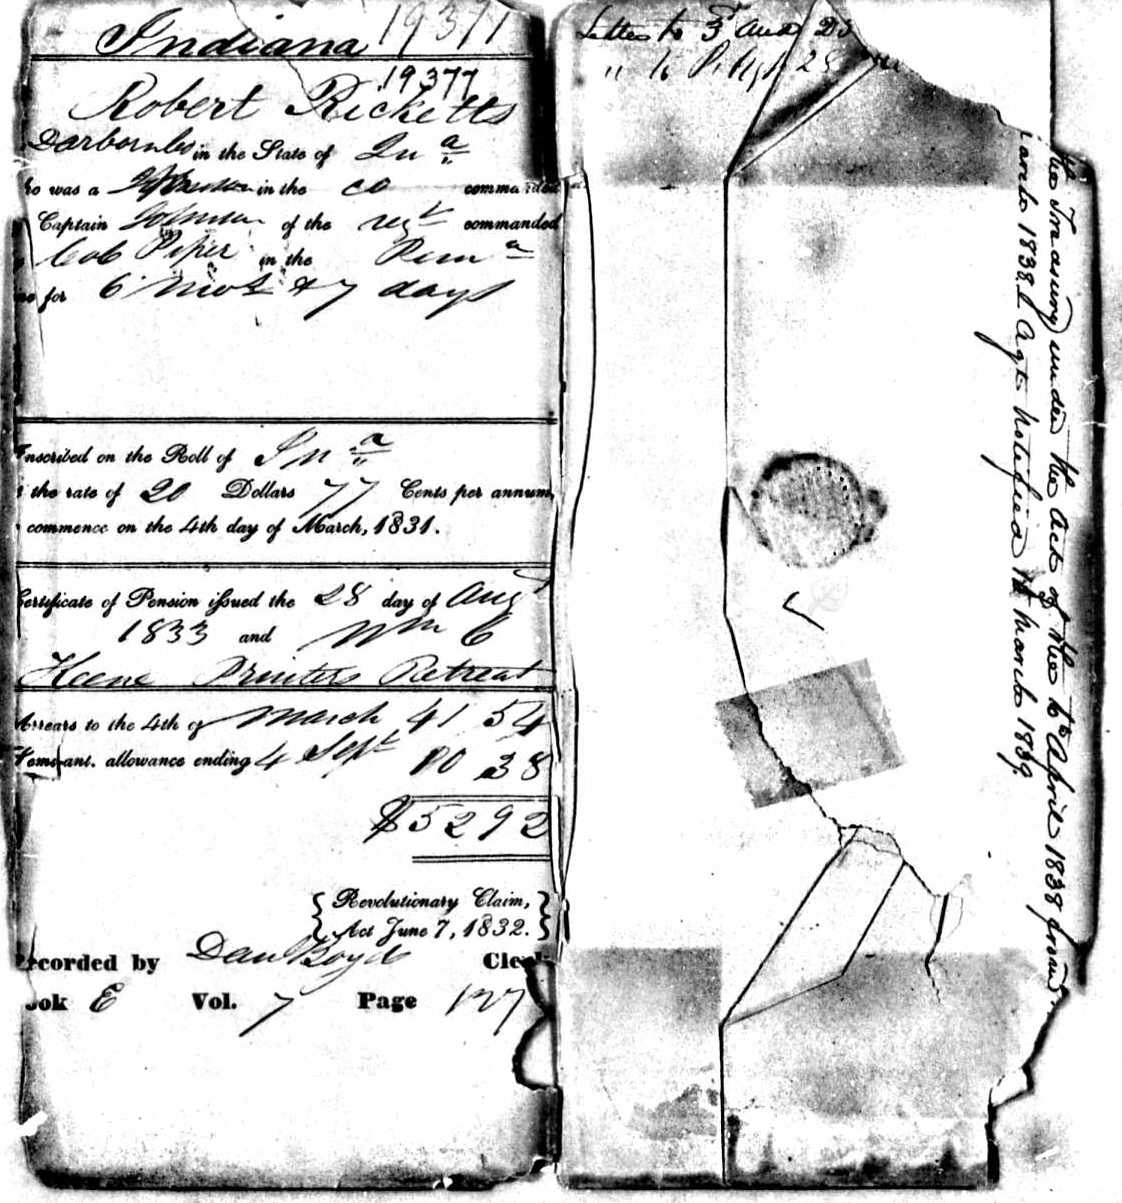 Indiana 19377
19377
Robert Ricketts
Darborn Co in the State of In a
o was a in the co commanded
Captain Johnson of the regt commanded
Col Piper in the Penn a
for 6 mos & 7 days
Inscribed on the Roll of In a
the rate of 20 Dollars 77 Cents per annum,
commence on the 4th day of March, 1831.
Certificate of Pension issued the 28 day of Aug
1833 and Wm C
Keene Printers Retreat
Arrears to the 4th of March 41 54
Semi-ant. allowance ending 4 Sept 10 38
$52 92
Revolutionary Claim,
Act June 7, 1832.
Recorded by Dan Boyd Clerk
Book E Vol. 7 Page 127
Letter to 3d Aug 23
" to 28
the Treasury under the act of the 6th April 1838 from
March 1838. Agt notified 14 March 1839.